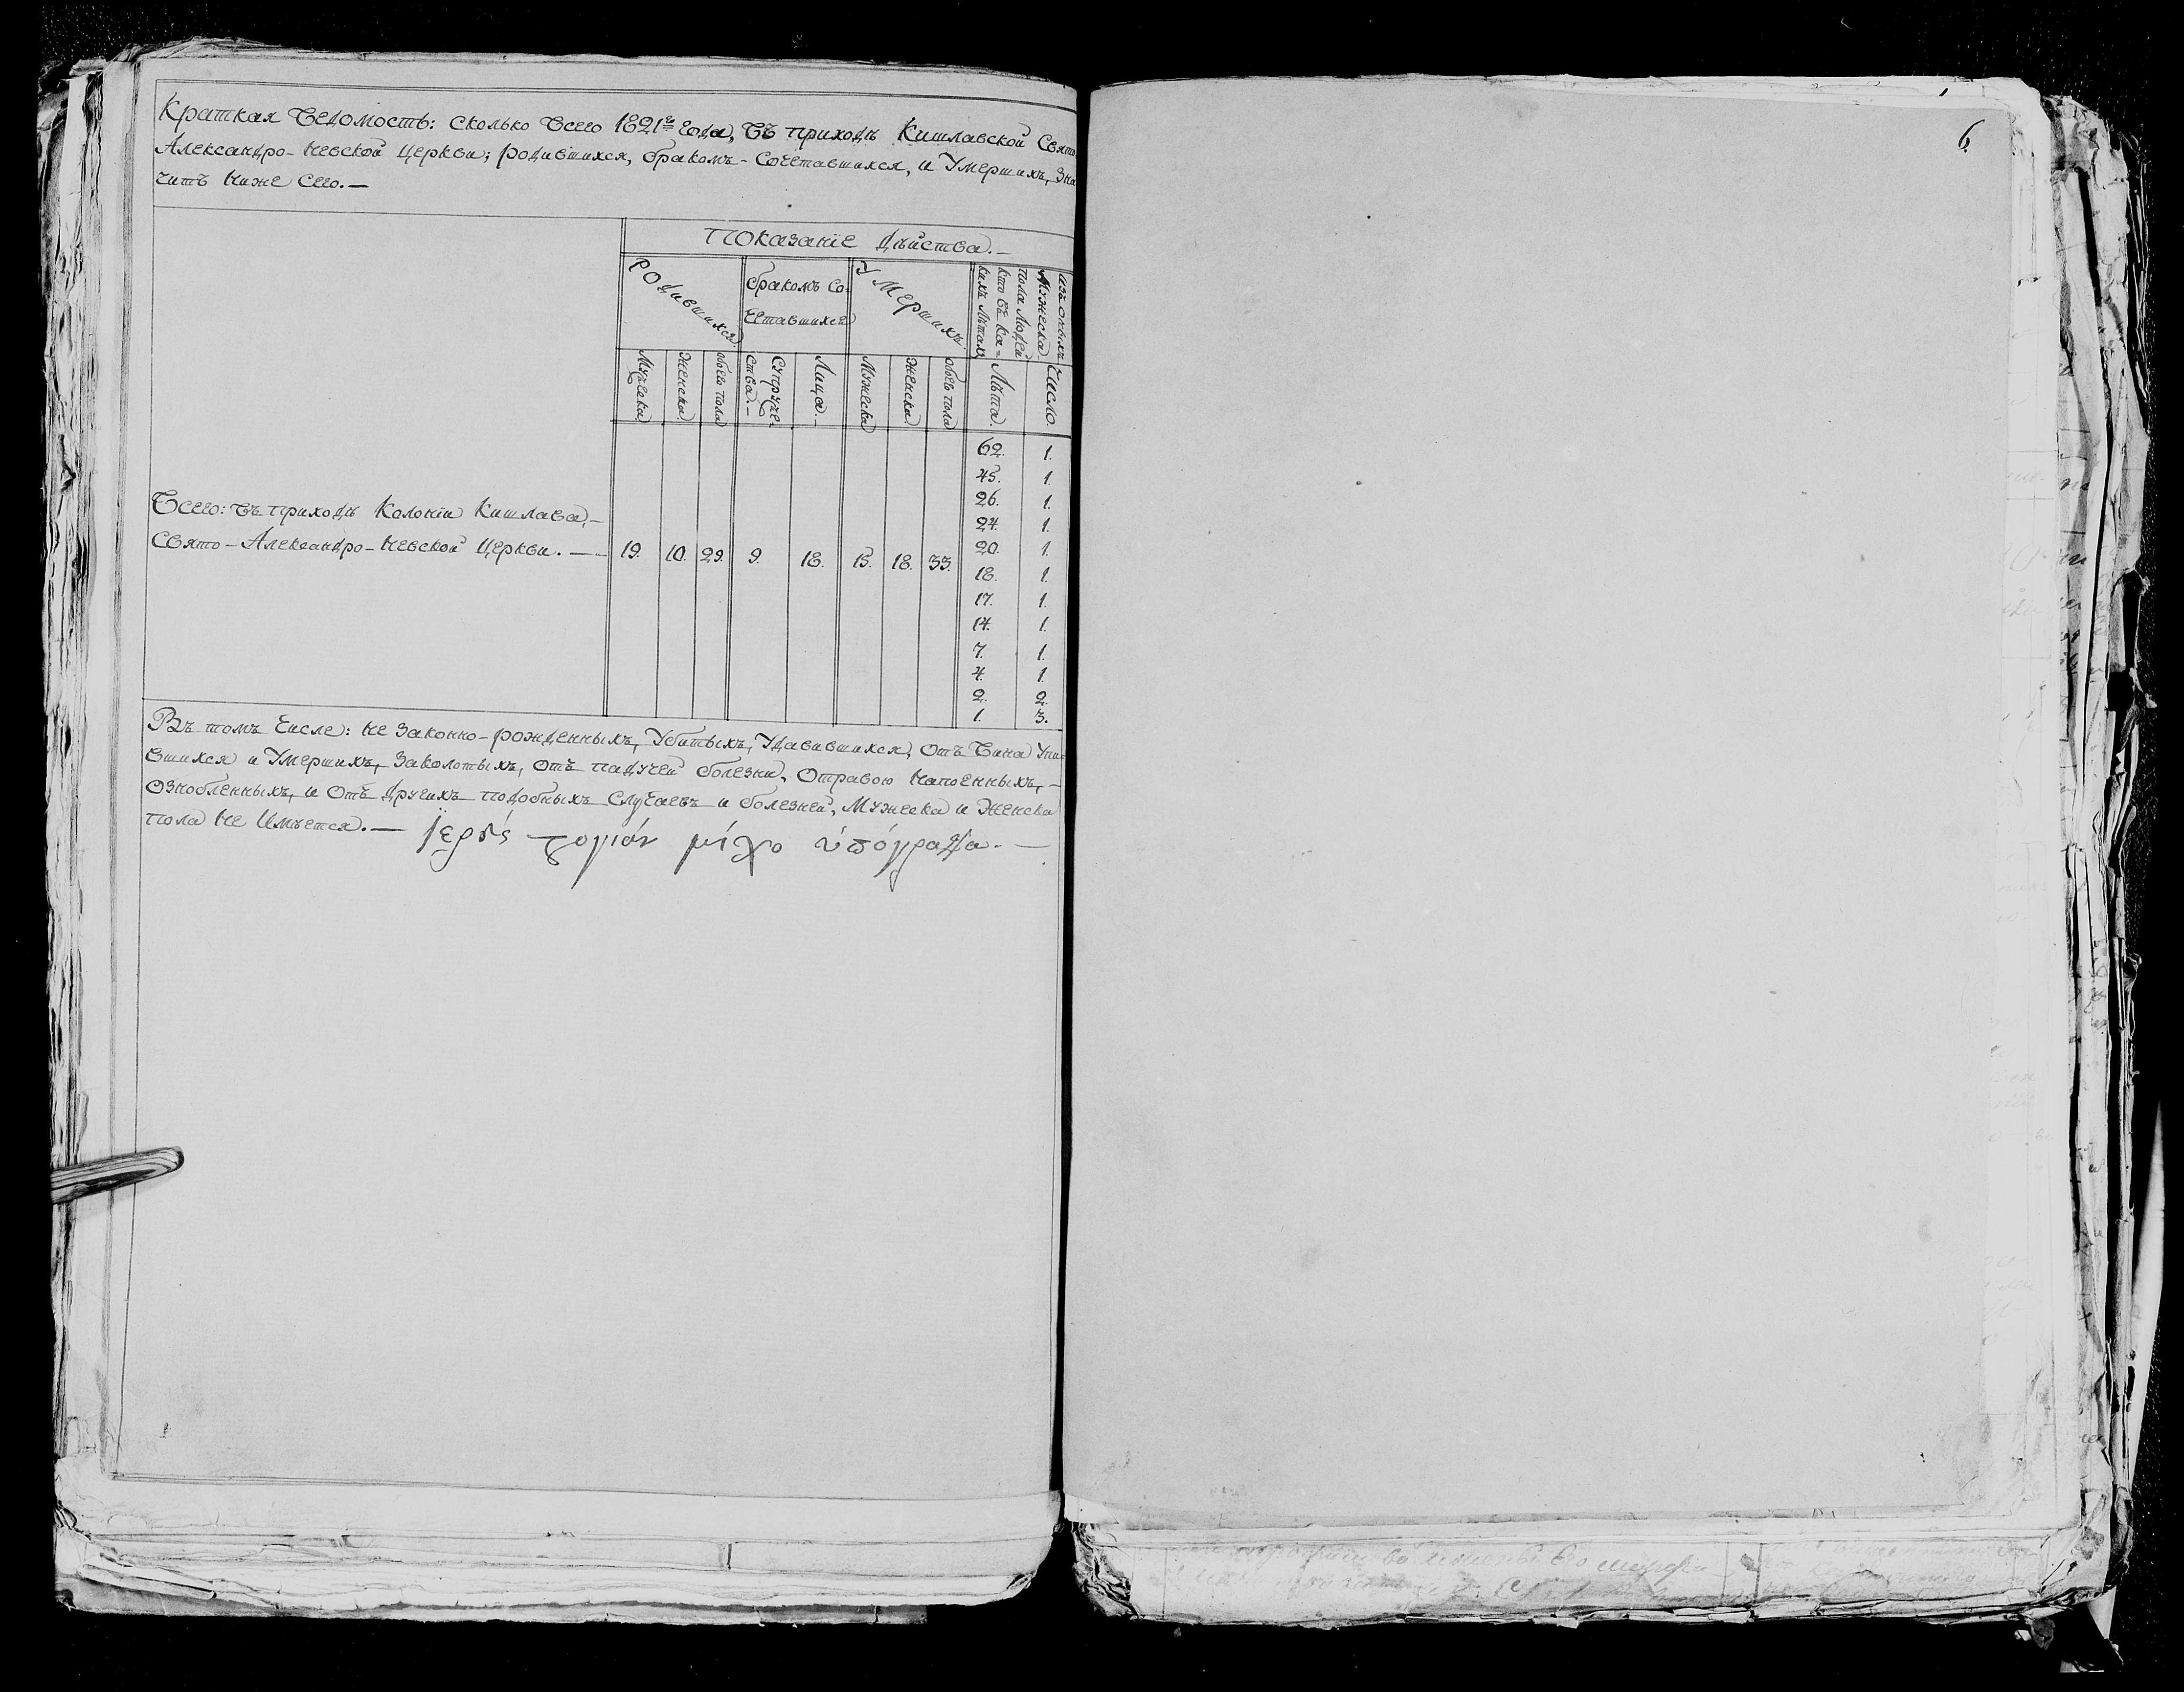 Краткая Ведомость: сколько Всего 1821го года, Въ приходѣ Кишлавской Свято
Александро-Невской Церкви; родившихся, бракомъ-Сочетавшихся, и Умершихъ, Зна
читъ Ниже Сего.—
Показаніе Дѣйства.—
Родившихся.
Бракомъ Со-
четавшихся
Умершихъ.
изъ оныхъ
Мужеска
пола Людей
кто Въ Ка=
кихъ Лѣтахъ
Мужеска
Женска
обоего пола
Супруже-
ства.—
Лица.—
Мужеска
Женска
обоего пола
Лѣта.
Число.
62. 1.
45. 1.
26. 1.
24. 1.
20. 1.
18. 1.
17. 1.
14. 1.
7. 1.
4. 1.
2. 2.
1. 3.
Всего: Въ приходѣ Колоніи Кишлава,—
Свято-Александро-Невской Церкви.— 19. 10. 29. 9. 18. 15. 18. 33.
Въ томъ Числе: Не Законно-рожденныхъ, Убитыхъ, Удавившихся, Отъ Вина Упи=
вшихся и Умершихъ, Заколотыхъ, отъ падучей болезни, Отравою Напоенныхъ,—
Ознобленныхъ, и Отъ Другихъ подобныхъ Случаевъ и болезней, Мужеска и Женска
пола Не Имѣется.— ὑπόγραψα.—
6.